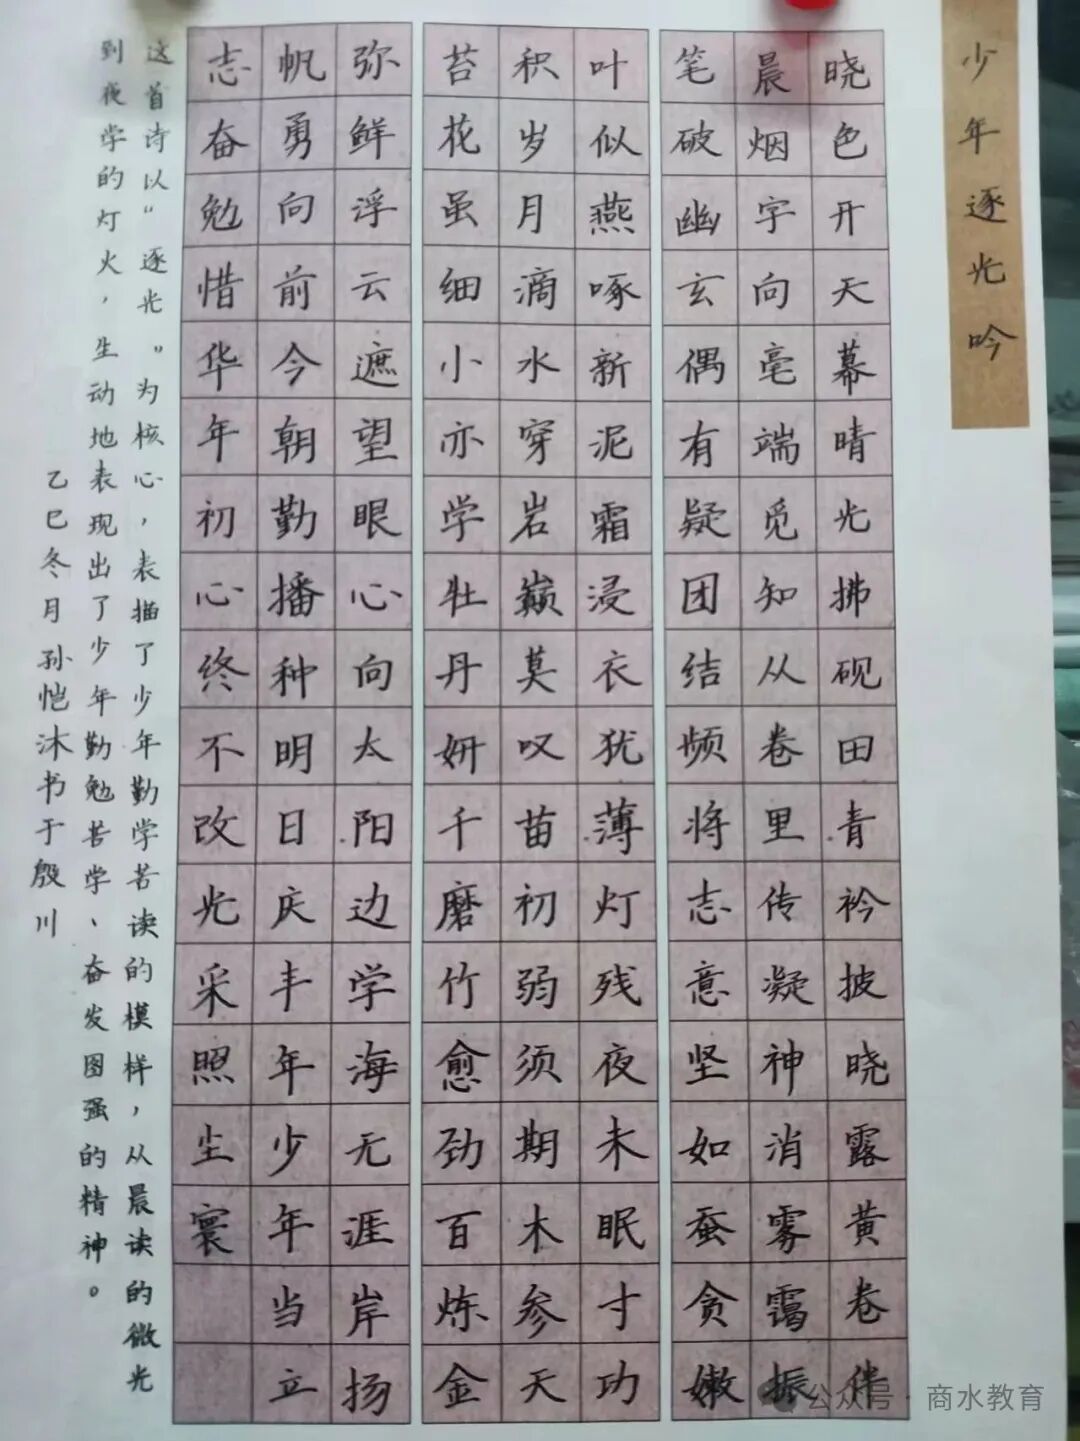 少年逐光吟
晓色开天幕晴光拂砚田青衿披晓露黄卷伴
晨烟字向毫端觅知从卷里传凝神消雾霭振
笔破幽玄偶有疑团结频将志意坚如蚕贪嫩
叶似燕啄新泥霜浸衣犹薄灯残夜未眠寸功
积岁月滴水穿岩巅莫叹苗初弱须期木参天
苔花虽细小亦学牡丹妍千磨竹愈劲百炼金
弥鲜浮云遮望眼心向太阳边学海无涯岸扬
帆勇向前今朝勤播种明日庆丰年少年当立
志奋勉惜华年初心终不改光采照尘寰
这首诗以“逐光”为核心，表描了少年勤学苦读的模样，从晨读的微光
到夜学的灯火，生动地表现出了少年勤勉苦学、奋发图强的精神。
乙巳冬月孙恺沐书于殷川
公众号·商水教育